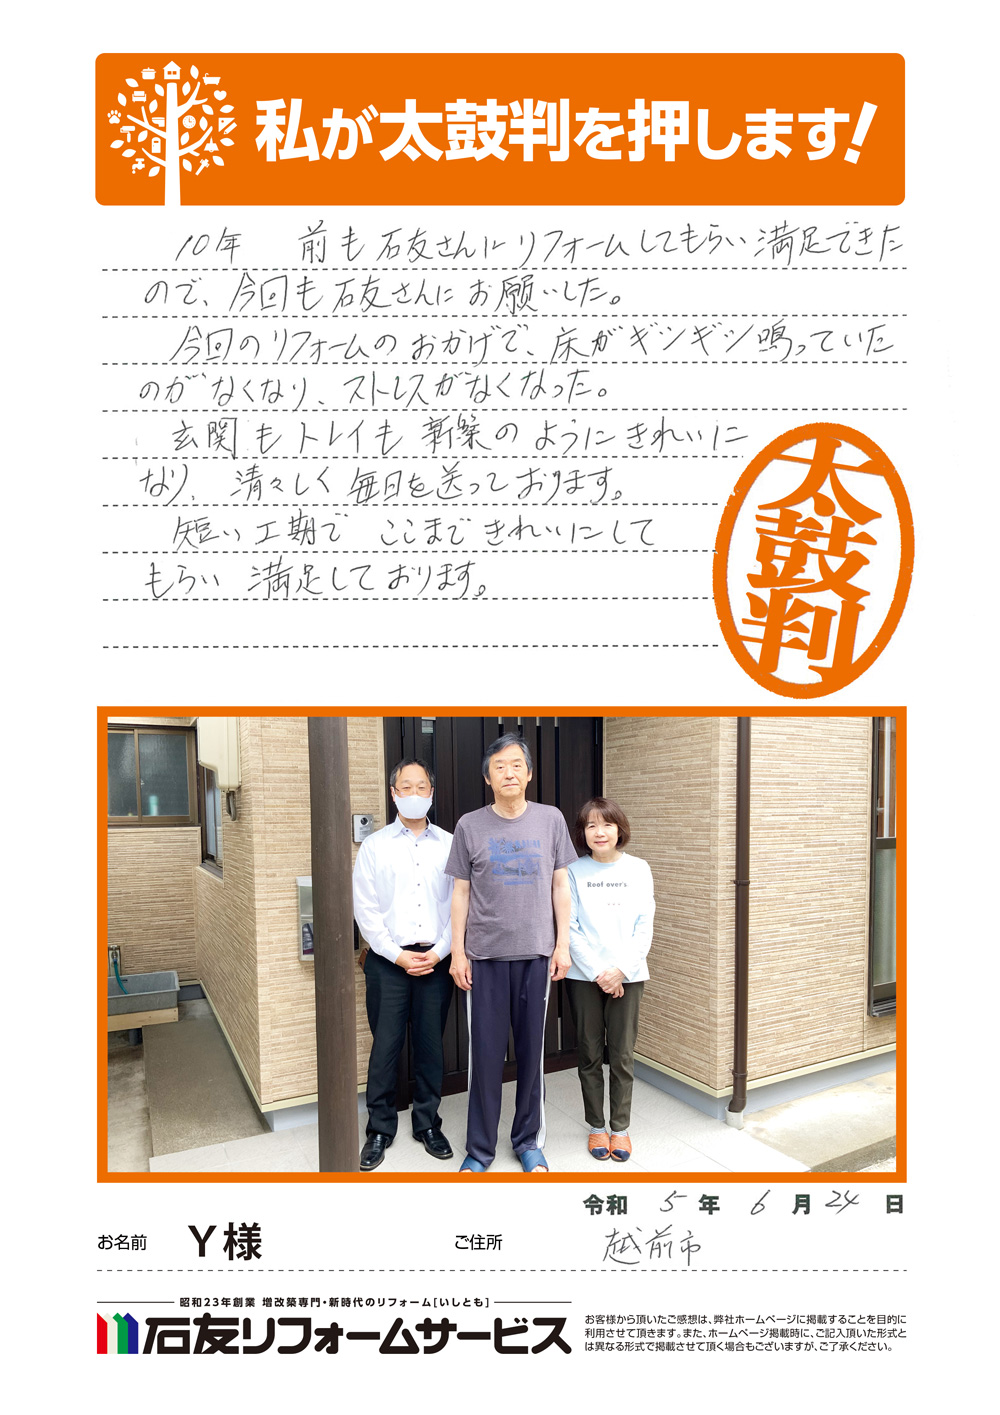 私が太鼓判を押します!
10年 前も石友さんにリフォームしてもらい満足できた
ので、今回も石友さんにお願いした。
今回のリフォームのおかげで、床がギシギシ鳴っていた
のがなくなり、ストレスがなくなった。
玄関もトイレも新築のようにきれいに
なり、清々しく毎日を送っております。
短い工期で ここまできれいにして
もらい 満足しております。
太鼓判
Roof over's
令和 5 年 6 月 24 日
お名前 Y様 ご住所 越前市
昭和23年創業 増改築専門・新時代のリフォーム[いしとも]
石友リフォームサービス
お客様から頂いたご感想は、弊社ホームページに掲載することを目的に
利用させて頂きます。また、ホームページ掲載時に、ご記入頂いた形式と
は異なる形式で掲載させて頂く場合もございますが、ご了承ください。